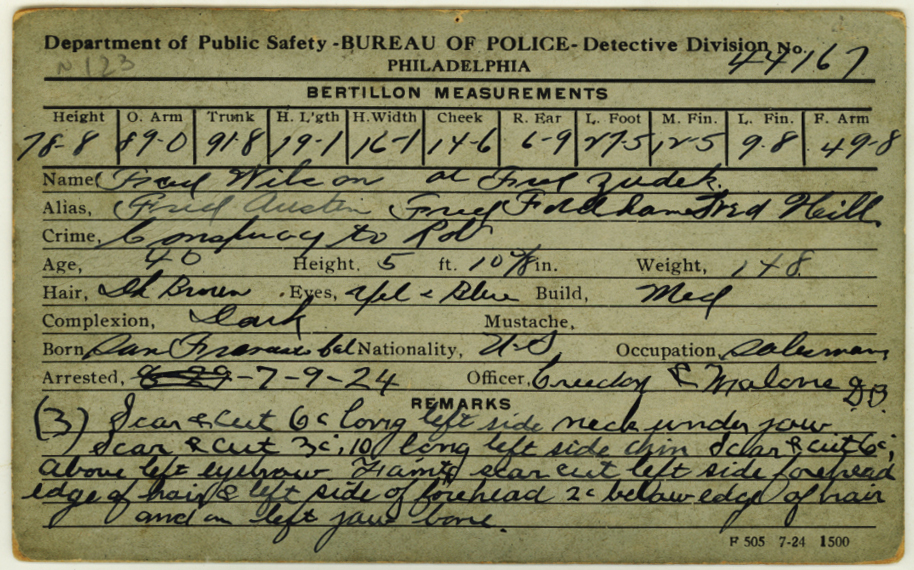 Department of Public Safety - BUREAU OF POLICE - Detective Division No. 44167
N 123
PHILADELPHIA
BERTILLON MEASUREMENTS
Height O. Arm Trunk H. L'gth H. Width Cheek R. Ear L. Foot M. Fin. L. Fin. F. Arm
78-8 89-0 91-8 19-1 16-1 14-6 6-9 27-5 12-5 9-8 49-8
Name Fred Wilson al Fred Zudek.
Alias, Fred Austin Fred Fordham Fred Hill
Crime, Conspiracy to Rob
Age, 40 Height. 5 ft. 10 7/8 in. Weight, 148
Hair, Dk Brown Eyes, Yel & Blue Build, Med
Complexion, Dark Mustache,
Born San Francisco Cal Nationality, U-S, Occupation, Salesman
Arrested, 7-9-24 Officer, Creedy & Malone DB
REMARKS
(3) Scar & cut 6c long left side neck under jaw
Scar & cut 3c;10 long left side chin Scar & cut 6c;
above left eyebrow scar cut left side forehead
edge of hair & left side of forehead 2c below edge of hair
and on left jaw bone.
F 505 7-24 1500